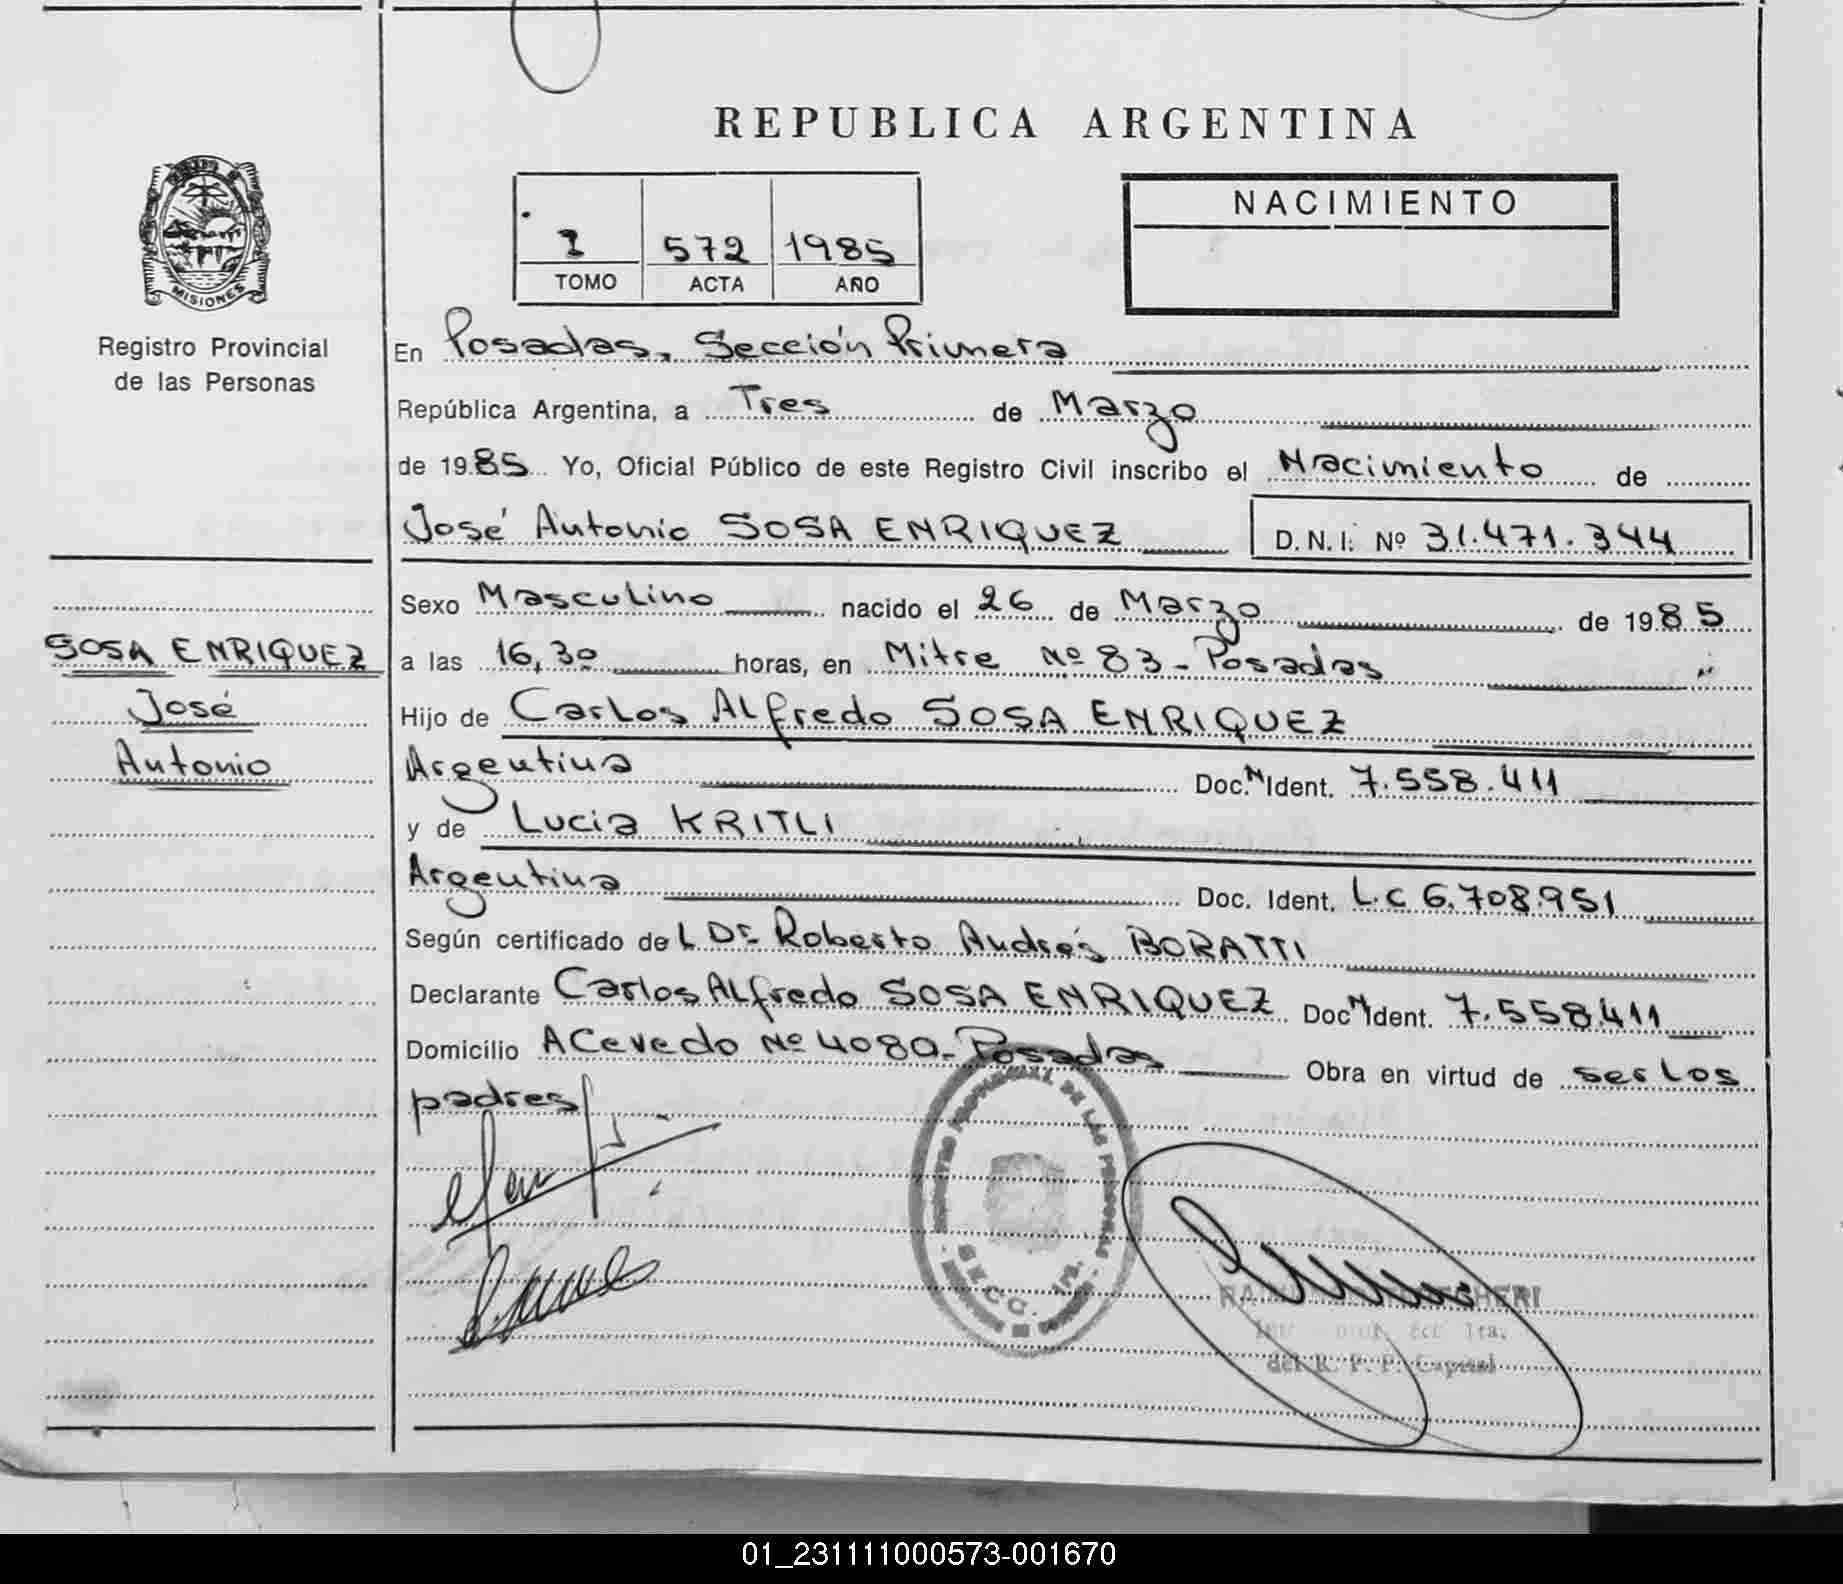 REPUBLICA ARGENTINA
MISIONES
Registro Provincial
de las Personas
572 1985
TOMO ACTA AÑO
NACIMIENTO
En Posadas, Sección Primera
República Argentina, a Tres de Marzo
de 1985 Yo, Oficial Público de este Registro Civil inscribo el Nacimiento de
José Antonio SOSA ENRIQUEZ D.N.I. Nº 31.471.344
SOSA ENRIQUEZ
José
Antonio
Sexo Masculino nacido el 26 de Marzo de 1985
a las 16,30 horas, en Mitre Nº 83 - Posadas
Hijo de Carlos Alfredo SOSA ENRIQUEZ
Argentina Doc. Ident. 7.558.411
y de Lucia KRITLI
Argentina Doc. Ident. L.C 6.708.951
Según certificado del Dr. Roberto Andrés BORATTI
Declarante Carlos Alfredo SOSA ENRIQUEZ Doc. Ident. 7.558.411
Domicilio Acevedo Nº 4080 - Posadas Obra en virtud de ser los
padres
REGISTRO PROVINCIAL DE LAS PERSONAS
SECC. 1ra.
1ra.
del R. P. P. Capital
01_231111000573-001670